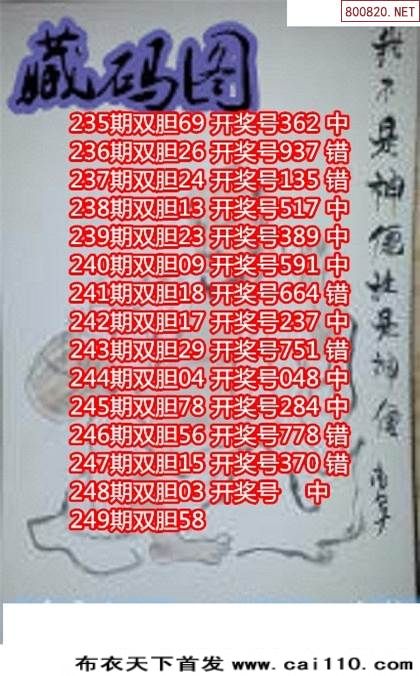 800820.NET
藏码图
235期双胆69 开奖号362 中
236期双胆26 开奖号937 错
237期双胆24 开奖号135 错
238期双胆13 开奖号517 中
239期双胆23 开奖号389 中
240期双胆09 开奖号591 中
241期双胆18 开奖号664 错
242期双胆17 开奖号237 中
243期双胆29 开奖号751 错
244期双胆04 开奖号048 中
245期双胆78 开奖号284 中
246期双胆56 开奖号778 错
247期双胆15 开奖号370 错
248期双胆03 开奖号 中
249期双胆58
我不是神仙壮是神仙
布衣天下首发 www.cai110.com